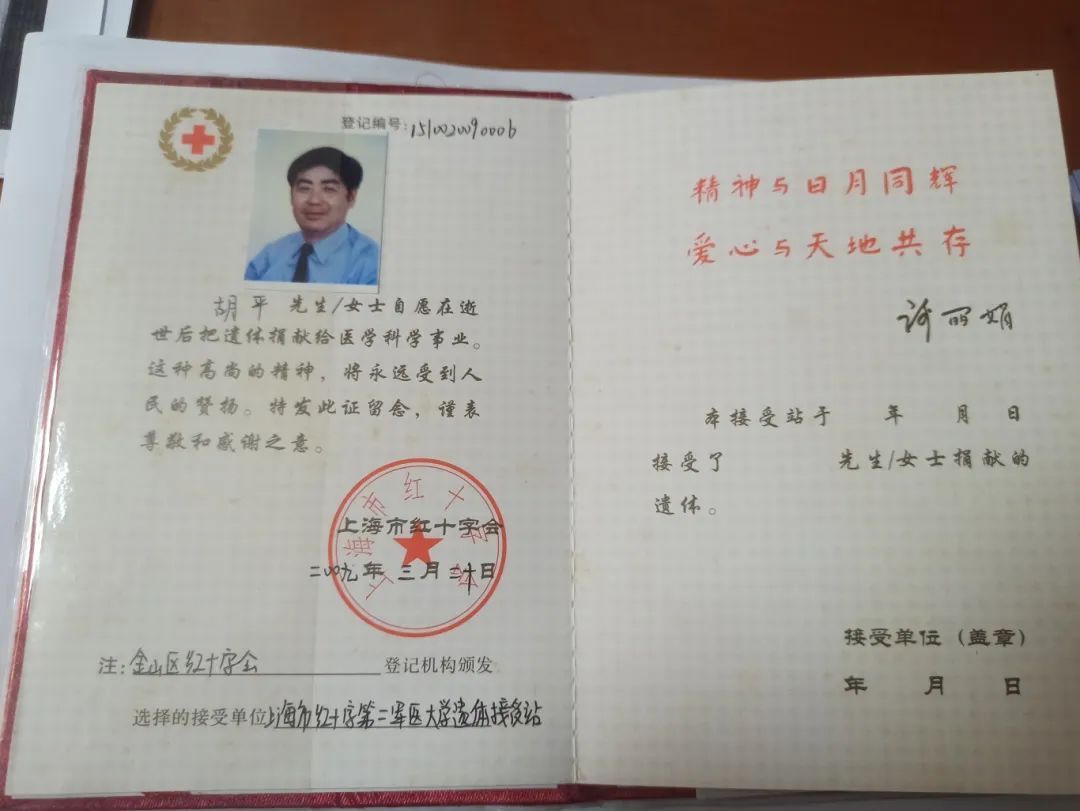 登记编号:151002090006
胡平 先生/女士自愿在逝
世后把遗体捐献给医学科学事业。
这种高尚的精神，将永远受到人
民的赞扬。特发此证留念，谨表
尊敬和感谢之意。
上海市红十字会
上海市红十字会
二00九年 三月二十日
注:金山区红十字会 登记机构颁发
选择的接受单位上海市红十字第二军医大学遗体接受站
精神与日月同辉
爱心与天地共存
许丽娟
本接受站于 年 月 日
接受了 先生/女士捐献的
遗体。
接受单位（盖章）
年 月 日